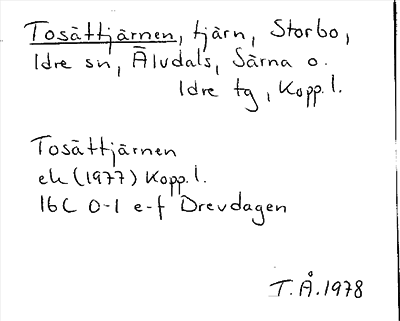 Tosättjärnen, tjärn, Storbo,
Idre sn, Älvdals, Särna o.
Idre tg, Kopp. l.
Tosättjärnen
ek (1977) Kopp. l.
16C 0-1 e-f Drevdagen
T.Å.1978